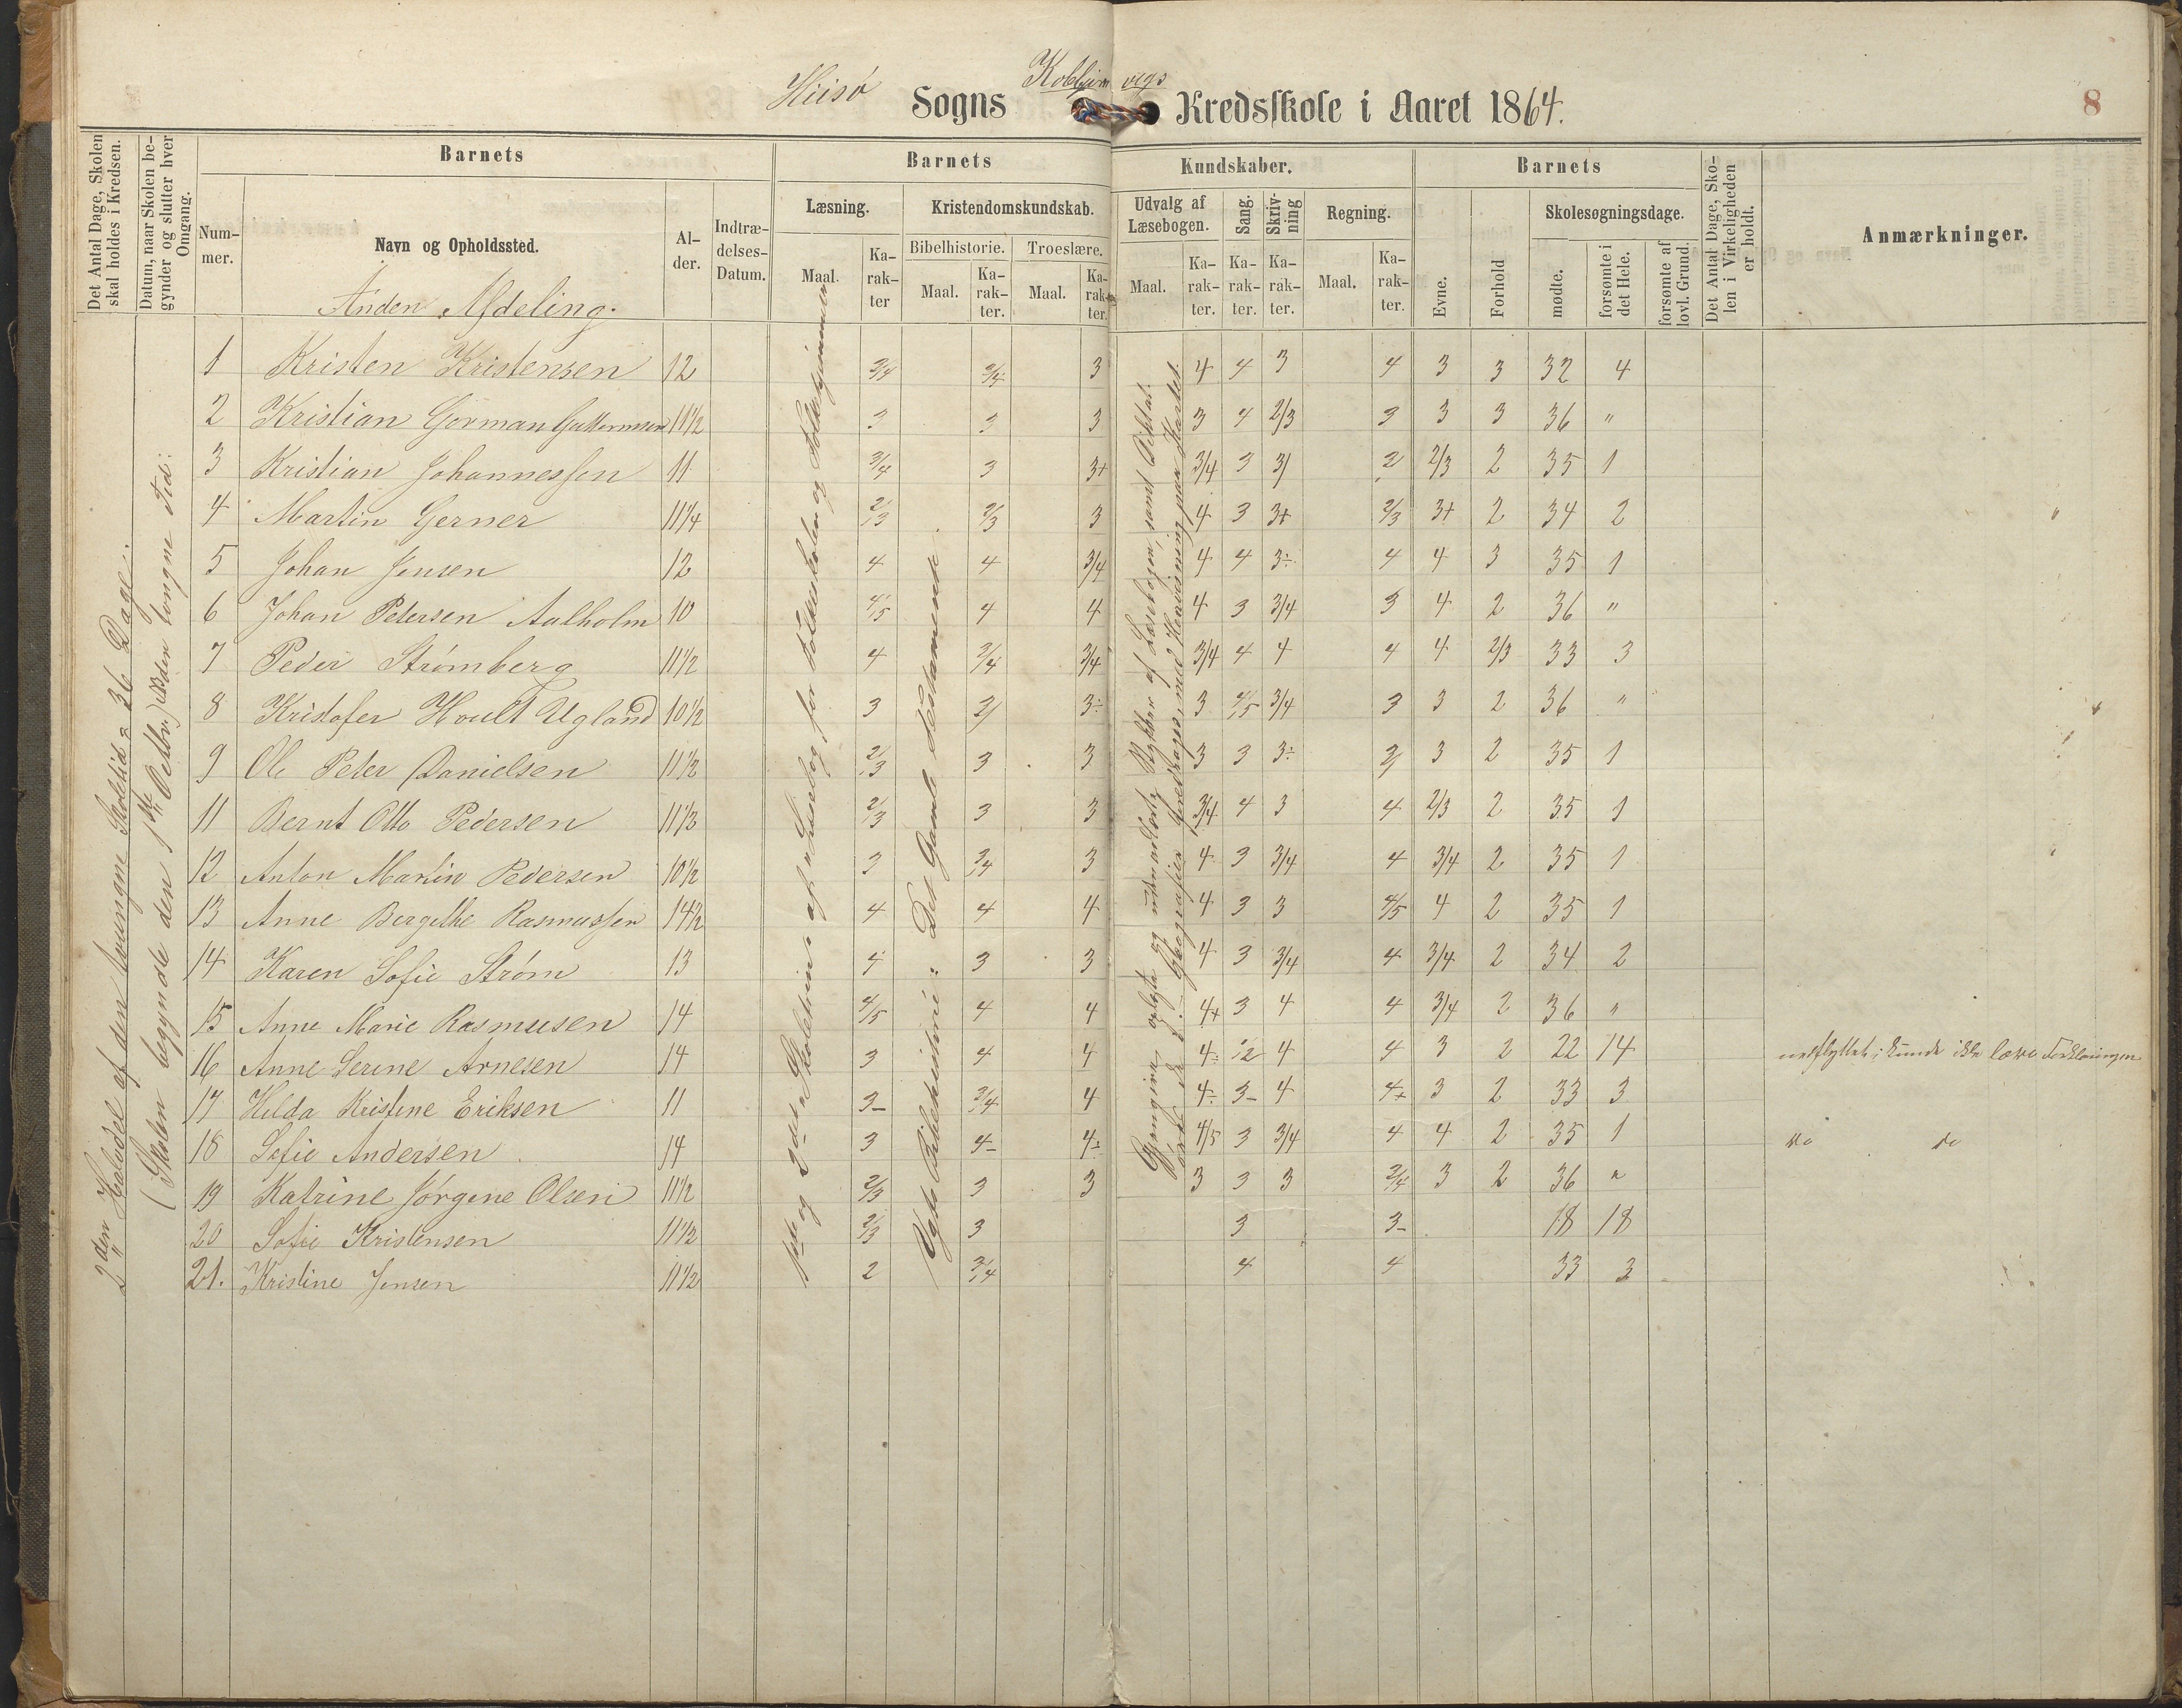 Hisø Sogns Kolbjørnsvigs Kredsskole i Aaret 1864.
8
Det Antal Dage, Skolen skal holdes i Kredsen.
Datum, naar Skolen begynder og slutter hver Omgang.
Barnets
Nummer.
Navn og Opholdssted.
Alder.
Indtrædelses-Datum.
Barnets Kundskaber.
Læsning.
Maal.
Karakter
Kristendomskundskab.
Bibelhistorie.
Maal.
Karakter.
Troeslære.
Maal.
Karakter.
Udvalg af Læsebogen.
Maal.
Karakter.
Sang.
Karakter.
Skrivning
Karakter.
Regning.
Maal.
Karakter.
Barnets
Evne.
Forhold
Skolesøgningsdage.
mødte.
forsømte i det Hele.
forsømte af lovl. Grund.
Det Antal Dage, Skolen i Virkeligheden er holdt.
Anmærkninger.
Anden Afdeling.
2den Halvdel af den tvungne Skoletid = 36 Dage.
(Skolen begynde den 1ste Octbr.)
1ste og 2det Skoletrin af "Læsebog for Folkeskolen og Folkehjemmet
Vogts Bibelhistorie: Det Gamle Testamente.
1 Kristen Kristensen 12 3/4 3/4 3 4 4 3 4 3 3 32 4
2 Kristian Gorman Guttormsen 11 1/2 3 3 3 3 4 2/3 3 3 3 36 "
3 Kristian Johannessen 11 3/4 3 3+ 3/4 3 3/ 2 2/3 2 35 1
4 Martin Gerner 11 1/4 2/3 2/3 3 4 3 3+ 2/3 3+ 2 34 2
5 Johan Jensen 12 4 4 3/4 4 4 3÷ 4 4 3 35 1
6 Johan Petersen Aalholm 10 4/5 4 4 4 3 3/4 3 4 2 36 "
7 Peder Strømberg 11 1/2 4 3/4 3/4 3/4 4 4 4 4 2/3 33 3
8 Kristofer Hoult Ugland 10 1/2 3 3/ 3÷ 3 4/5 3/4 3 3 2 36 "
9 Ole Peter Danielsen 11 1/2 2/3 3 3 3 3 3÷ 3/ 3 2 35 1
11 Bernt Otto Pedersen 11 1/3 2/3 3 3 3/4 4 3 4 2/3 2 35 1
12 Anton Martin Pedersen 10 1/2 3 3/4 3 4 3 3/4 4 3/4 2 35 1
13 Anne Bergithe Rasmussen 14 1/2 4 4 4 4 3 3 4/5 4 2 35 1
14 Karen Sofie Strøm 13 4 3 3 4 3 3/4 4 3/4 2 34 2
15 Anne Marie Rasmusen 14 4/5 4 4 4+ 3 4 4 3/4 2 36 "
16 Anne Serine Arnesen 14 3 4 4 4÷ 1/2 4 4 3 2 22 14 udflyttet; kunde ikke lære Forklaringen
17 Hilda Kristine Eriksen 11 3- 3/4 4 4÷ 3- 4 4+ 3 2 33 3
18 Sofie Andersen 14 3 4- 4÷ 4/5 3 3/4 4 4 2 35 1 do do
19 Katrine Jørgine Olsen 11 1/2 2/3 3 3 3 3 3 3/4 3 2 36 "
20 Sofie Kristensen 11 1/2 2/3 3 3 3- 18 18
21. Kristine Jensen 11 1/2 2 3/4 4 4 33 3